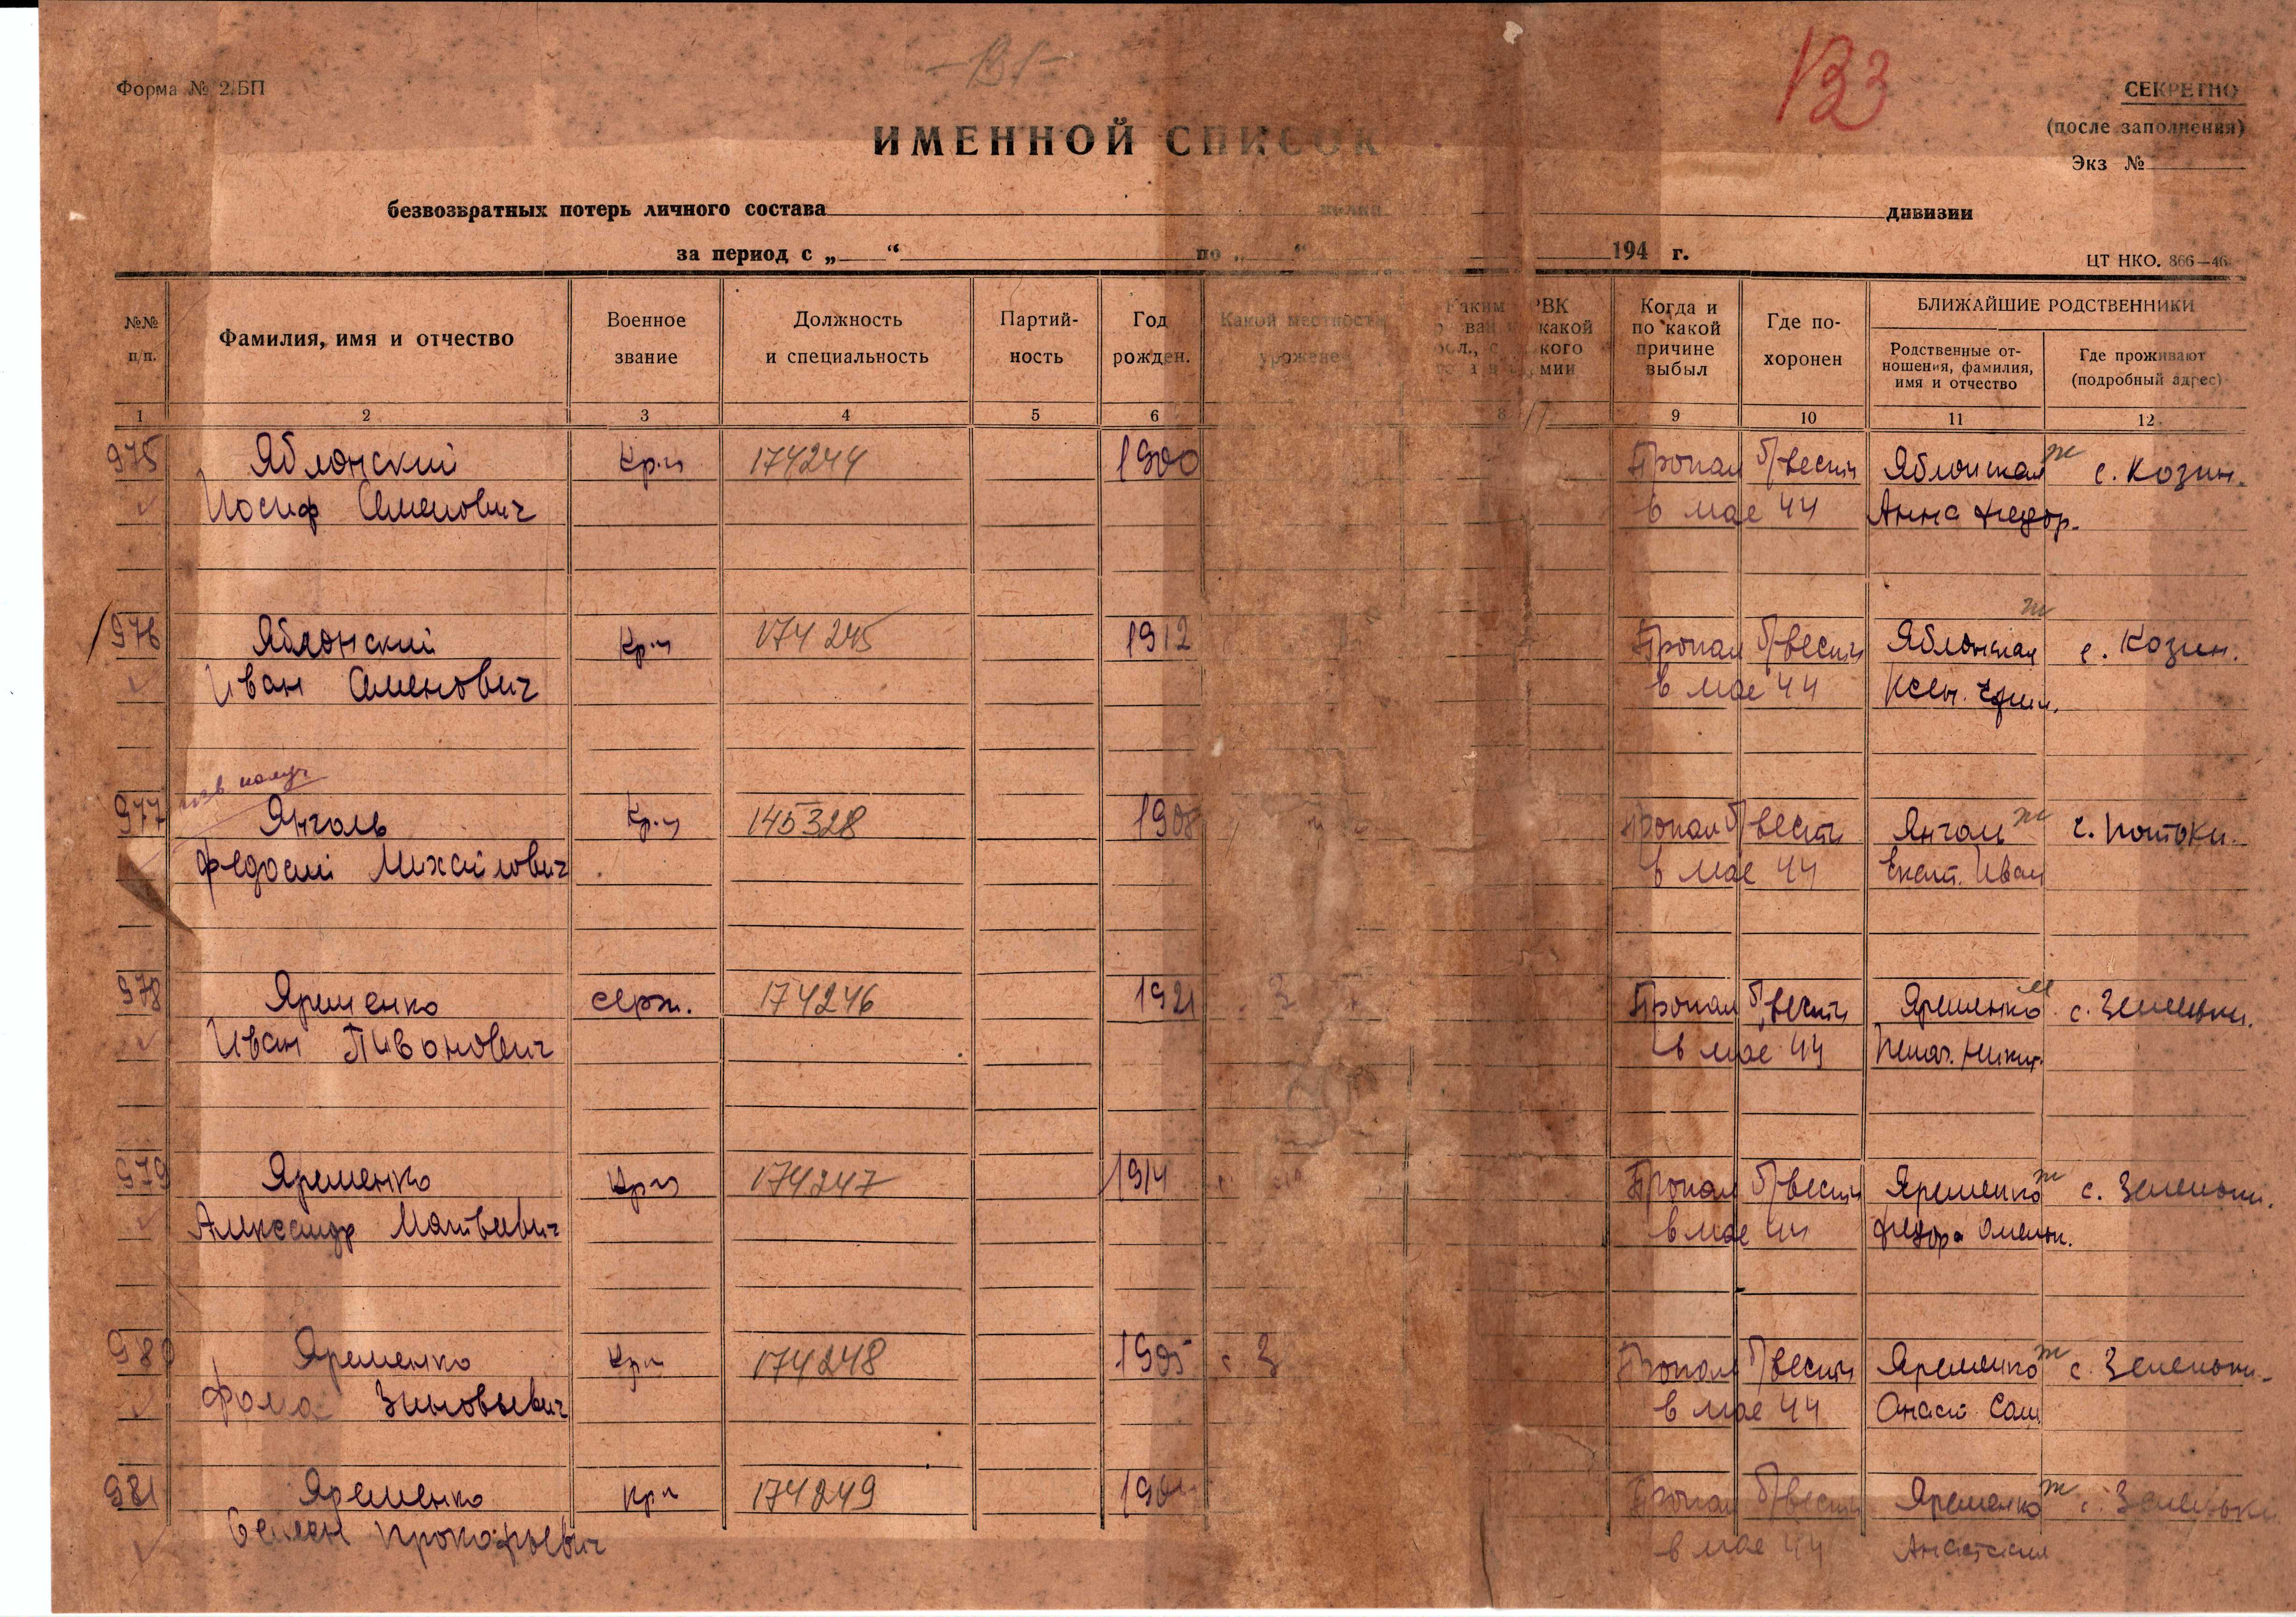 -131-
133
Форма № 2/БП
СЕКРЕТНО
(после заполнения)
Экз №
ИМЕННОЙ СПИСОК
безвозвратных потерь личного состава полка дивизии
за период с „ “ по „ “ 194 г.
ЦТ НКО. 866—46
№№ п/п.
Фамилия, имя и отчество
Военное звание
Должность и специальность
Партий-ность
Год рожден.
Какой местности уроженец
Каким РВК
какой
кого
мии
Когда и по какой причине выбыл
Где по-хоронен
БЛИЖАЙШИЕ РОДСТВЕННИКИ
Родственные от-ношения, фамилия, имя и отчество
Где проживают (подробный адрес)
1 2 3 4 5 6 8 9 10 11 12
975 Яблонский Кр-ц 174244 1900 Пропал б/вести Яблонская ж с. Козин.
Иосиф Семенович в мае 44 Анна Федор.
976 Яблонский Кр-ц 174245 1912 Пропал б/вести Яблонская ж с. Козин.
Иван Семенович в мае 44 Ксен. Ефим.
изв получ
977 Янголь Кр-ц 145328 1908 Пропал б/вести Янголь ж с. Потоки.
Федосий Михайлович в мае 44 Екат. Иван
978 Яременко серж. 174246 1921 Пропал б/вести Яременко м с. Зеленьки.
Иван Пивонович в мае 44 Пелаг. Никит.
979 Яременко Кр-ц 174247 1914 Пропал б/вести Яременко ж с. Зеленьки.
Александр Матвеевич в мае 44 Федора Омельк.
980 Яременко Кр-ц 174248 1905 с. З Пропал б/вести Яременко ж с. Зеленьки.
Фома Зиновьевич в мае 44 Онаст. Сам.
981 Яременко Кр-ц 174249 Пропал б/вести Яременко ж с. Зеленьки
Семен Прокофьевич в мае 44 Анастасия